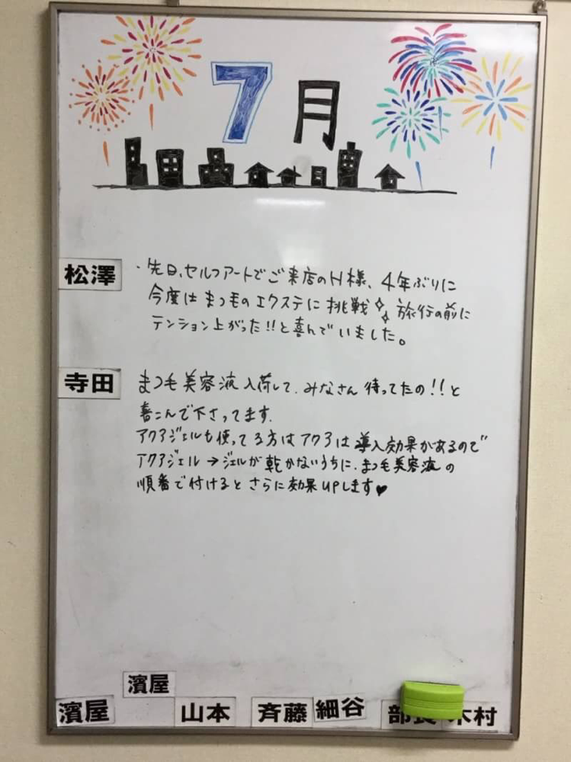 7月
松澤
・先日、セルフアートでご来店のH様、4年ぶりに
今度はまつ毛のエクステに挑戦 旅行の前に
テンション上がった!!と喜んでいました。
寺田
まつ毛美容液入荷して、みなさん待ってたの!!と
喜こんで下さってます。
アクアジェルも使ってる方はアクアは導入効果があるので
アクアジェル→ジェルが乾かないうちに、まつ毛美容液の
順番で付けるとさらに効果UPします♥
濱屋
濱屋 山本 斉藤 細谷 部長 木村